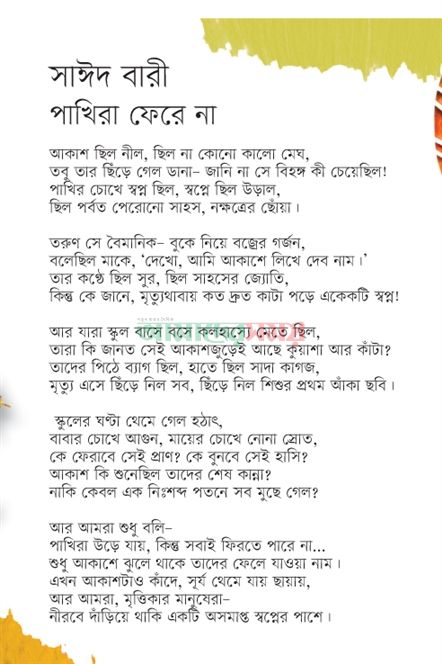 সাঈদ বারী
পাখিরা ফেরে না
আকাশ ছিল নীল, ছিল না কোনো কালো মেঘ,
তবু তার ছিঁড়ে গেল ডানা– জানি না সে বিহঙ্গ কী চেয়েছিল!
পাখির চোখে স্বপ্ন ছিল, স্বপ্নে ছিল উড়াল,
ছিল পর্বত পেরোনো সাহস, নক্ষত্রের ছোঁয়া।
তরুণ সে বৈমানিক– বুকে নিয়ে বজ্রের গর্জন,
বলেছিল মাকে, ‘দেখো, আমি আকাশে লিখে দেব নাম।’
তার কণ্ঠে ছিল সুর, ছিল সাহসের জ্যোতি,
কিন্তু কে জানে, মৃত্যুথাবায় কত দ্রুত কাটা পড়ে একেকটি স্বপ্ন!
আমাদের সময়
আর যারা স্কুল বাসে বসে কলহাস্যে মেতে ছিল,
তারা কি জানত সেই আকাশজুড়েই আছে কুয়াশা আর কাঁটা?
তাদের পিঠে ব্যাগ ছিল, হাতে ছিল সাদা কাগজ,
মৃত্যু এসে ছিঁড়ে নিল সব, ছিঁড়ে নিল শিশুর প্রথম আঁকা ছবি।
স্কুলের ঘণ্টা থেমে গেল হঠাৎ,
বাবার চোখে আগুন, মায়ের চোখে নোনা স্রোত,
কে ফেরাবে সেই প্রাণ? কে বুনবে সেই হাসি?
আকাশ কি শুনেছিল তাদের শেষ কান্না?
নাকি কেবল এক নিঃশব্দ পতনে সব মুছে গেল?
আর আমরা শুধু বলি–
পাখিরা উড়ে যায়, কিন্তু সবাই ফিরতে পারে না...
শুধু আকাশে ঝুলে থাকে তাদের ফেলে যাওয়া নাম।
এখন আকাশটাও কাঁদে, সূর্য থেমে যায় ছায়ায়,
আর আমরা, মৃত্তিকার মানুষেরা–
নীরবে দাঁড়িয়ে থাকি একটি অসমাপ্ত স্বপ্নের পাশে।